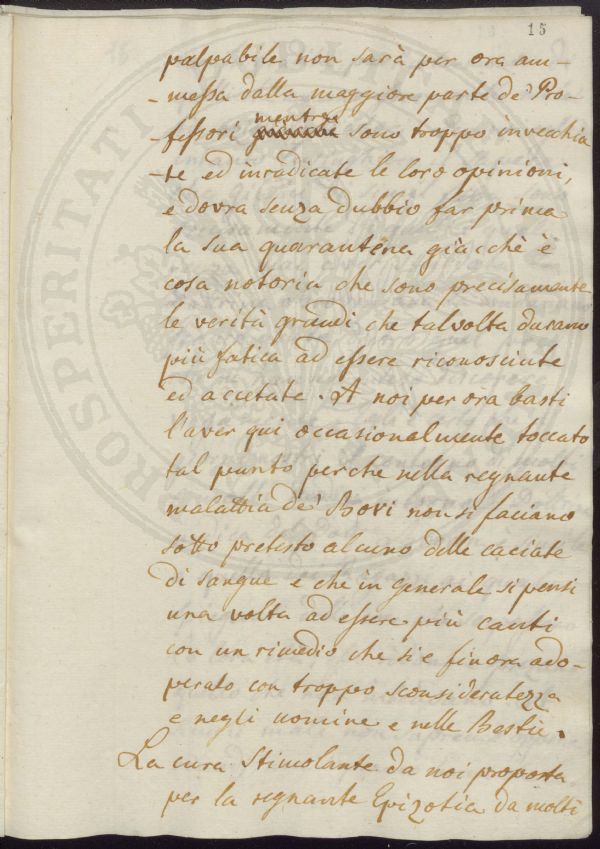 15
palpabile non sarà per ora am-
-messa dalla maggiore parte de' Pro-
-fessori mentre sono troppo invecchia
-te ed inradicate le loro opinioni,
e dovra senza dubbio far prima
la sua quarantena giacchè è
cosa notoria che sono precisamente
le verità grandi che talvolta durano
più fatica ad essere riconosciute
ed accetate. A noi per ora basti
l'aver qui occasionalmente toccato
tal punto perche nella regnante
malattia de' Bovi non si faciano
sotto pretesto alcuno delle caciate
di sangue e che in generale si pensi
una volta ad essere più cauti
con un rimedio che si è finora ado-
perato con troppo sconsideratezza
e negli uomine e nelle Bestie.
La cura Stimolante da noi proposta
per la regnante Epizotia da molti